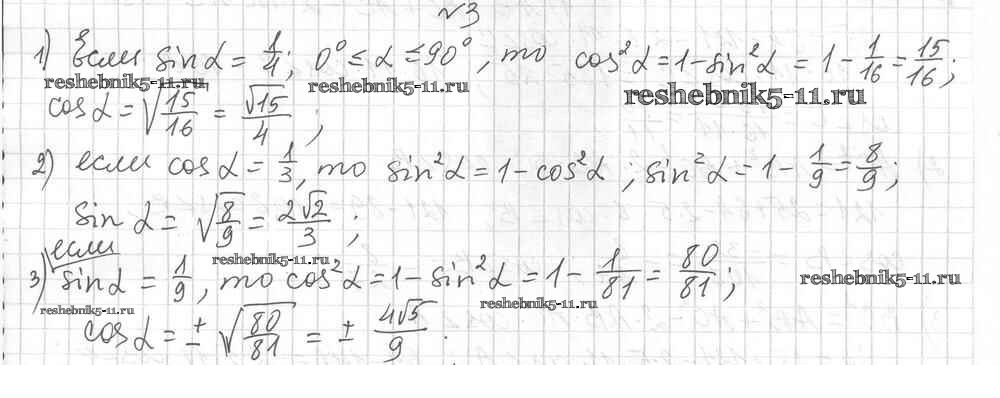 №3
1) Если sin α = 1/4; 0° ≤ α ≤ 90°, то cos²α = 1 - sin²α = 1 - 1/16 = 15/16;
reshebnik5-11.ru
reshebnik5-11.ru
reshebnik5-11.ru
cos α = √(15/16) = √15/4;
2) если cos α = 1/3, то sin²α = 1 - cos²α; sin²α = 1 - 1/9 = 8/9;
sin α = √(8/9) = 2√2/3;
reshebnik5-11.ru
если
3) sin α = 1/9, то cos²α = 1 - sin²α = 1 - 1/81 = 80/81;
reshebnik5-11.ru
reshebnik5-11.ru
reshebnik5-11.ru
cos α = ± √(80/81) = ± 4√5/9.